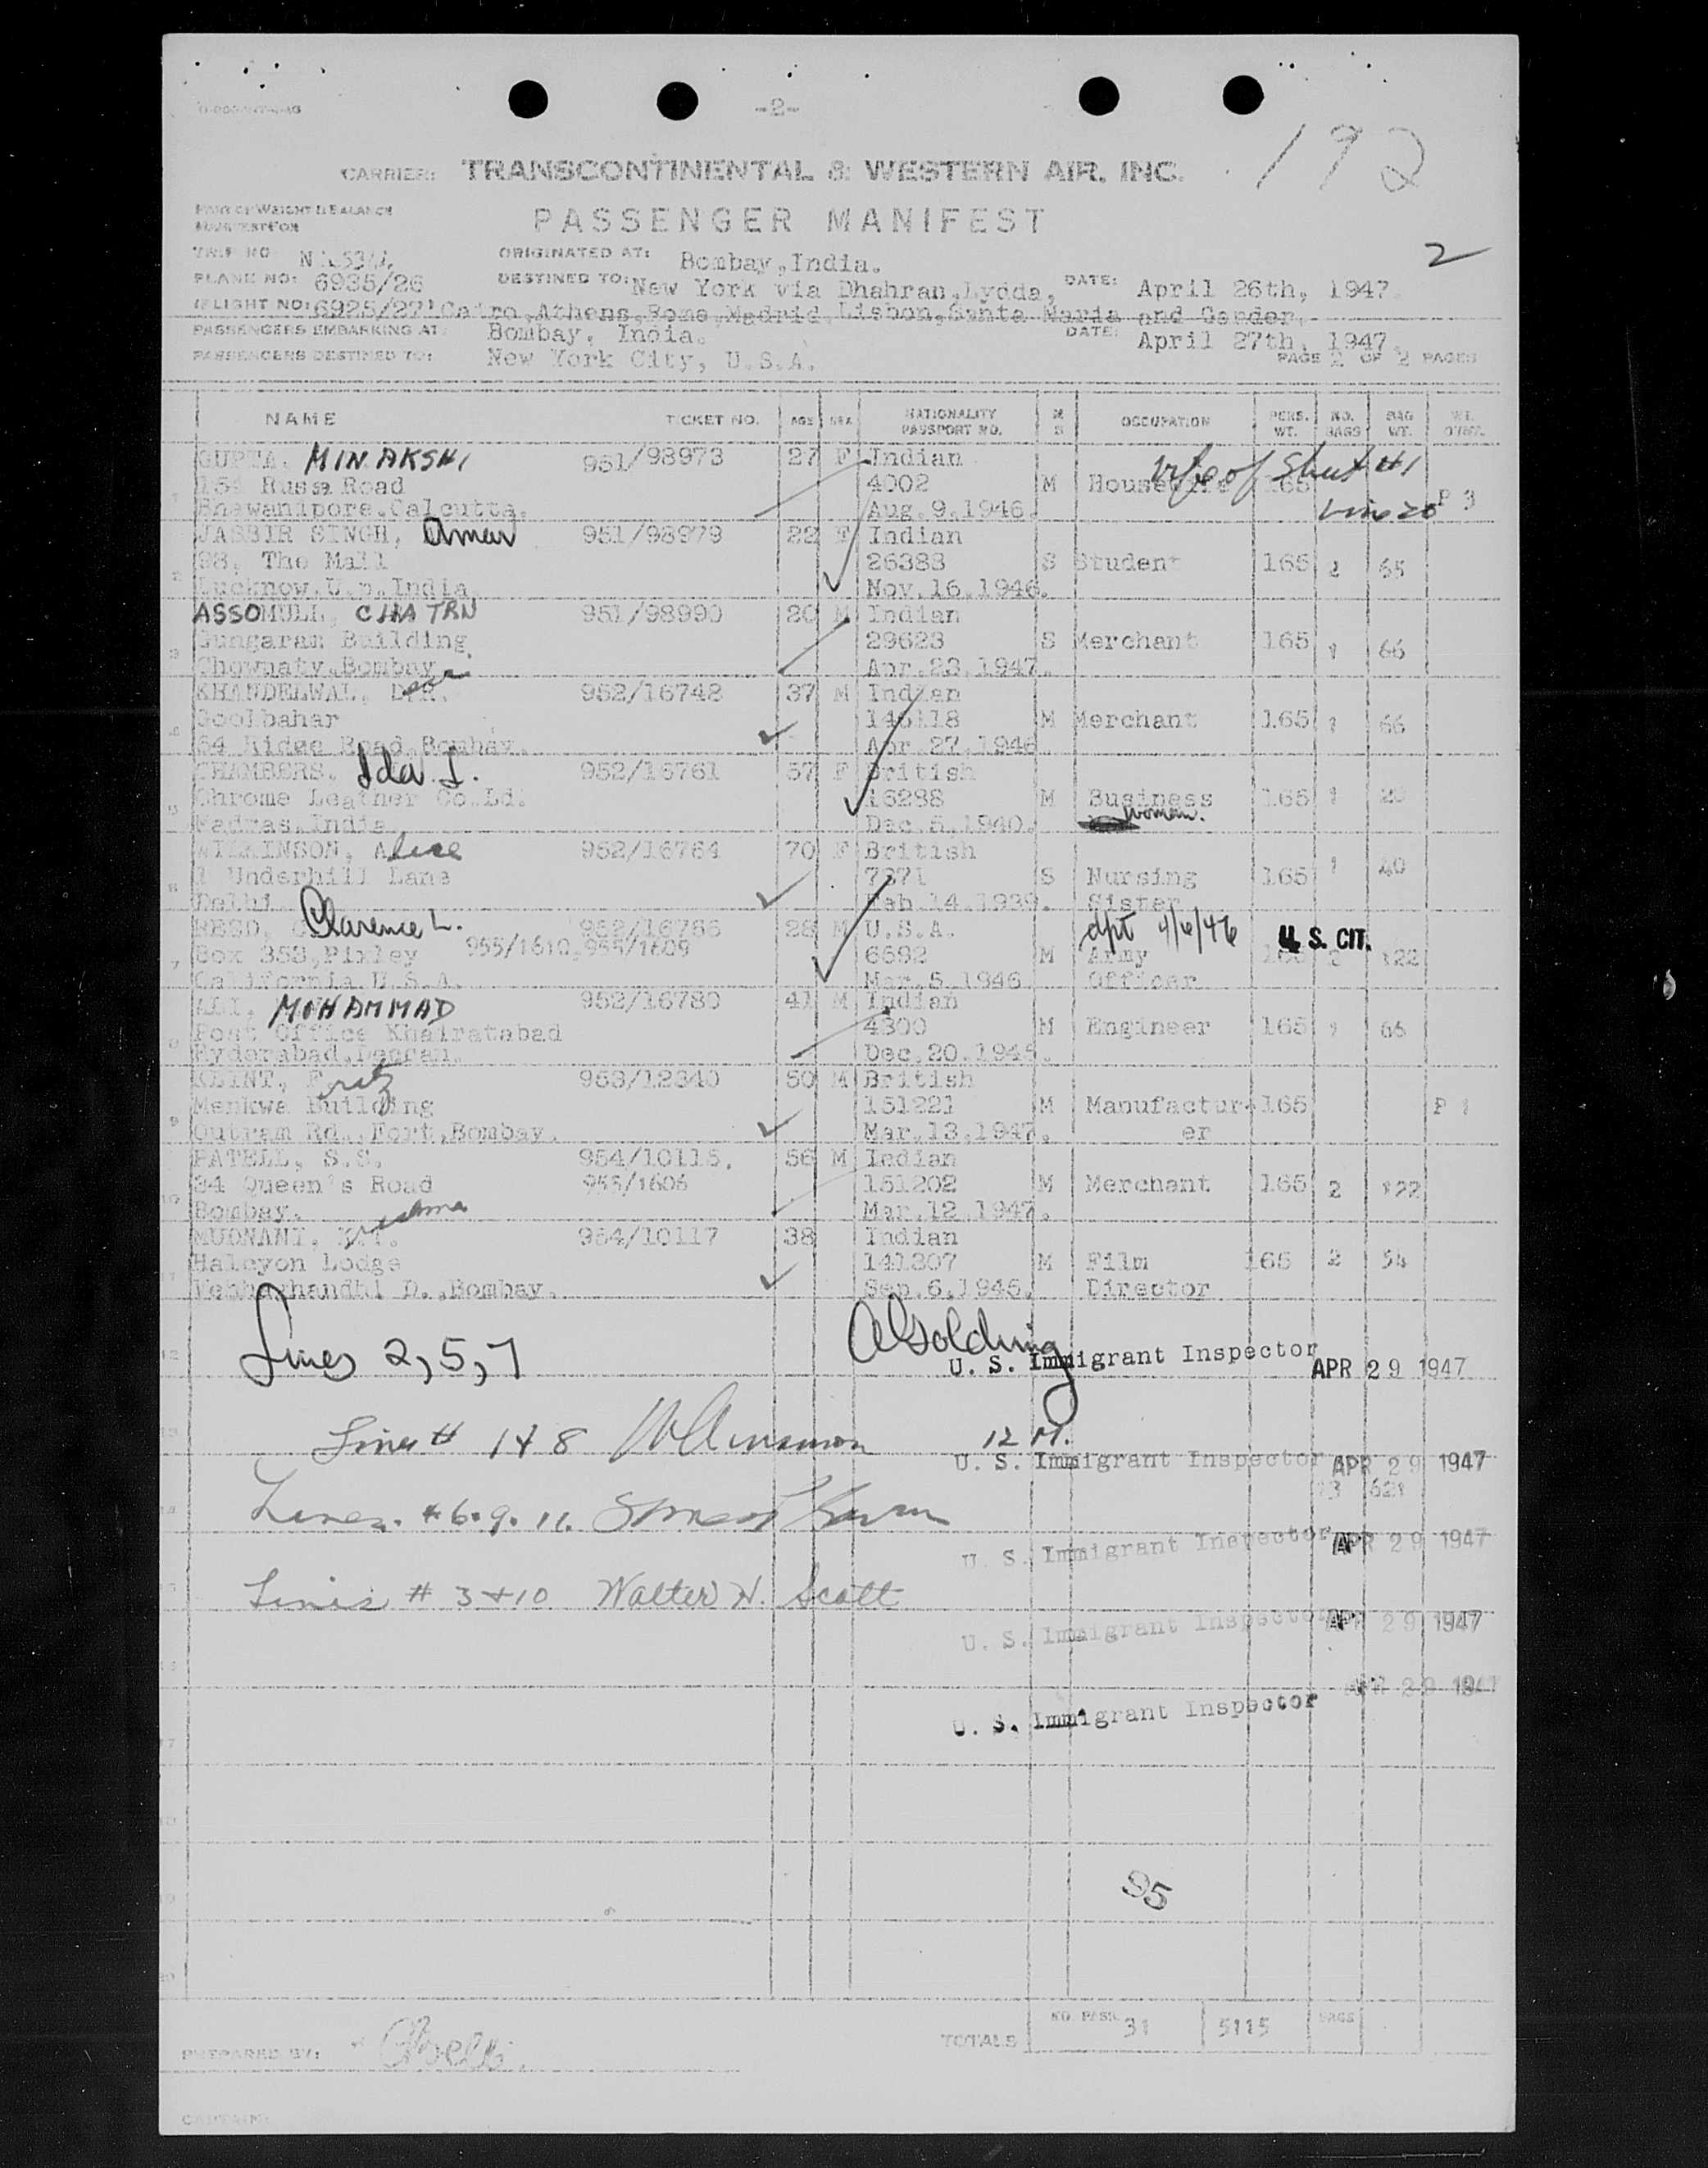 -2-
192
CARRIER: TRANSCONTINENTAL & WESTERN AIR, INC.
PASSENGER MANIFEST
2
TRIP NO
ORIGINATED AT: Bombay, India.
PLANE NO: 6935/26
DESTINED TO: New York via Dhahran, Lydda, DATE: April 26th, 1947.
FLIGHT NO: 6925/27 Cairo, Athens, Rome, Madrid, Lisbon, Santa Maria and Gander.
PASSENGERS EMBARKING AT: Bombay, India. DATE: April 27th, 1947.
PASSENGERS DESTINED TO: New York City, U.S.A. PAGE 2 OF 2 PAGES
NAME TICKET NO. AGE SEX NATIONALITY PASSPORT NO. M S OCCUPATION PERS. WT. NO. BAGS BAG WT.
GUPTA, MINAKSHI 951/98973 27 F Indian wife of Sheet #1
154 Russa Road 4002 M Housewife 165 Line 20 P 3
Bhawanipore, Calcutta. Aug. 9, 1946.
JASBIR SINGH, Amar 951/98979 22 Indian
98, The Mall 26383 S Student 165 2 65
Lucknow, U.P. India. Nov. 16, 1946.
ASSOMULL, CHATRU 951/98990 20 M Indian
Gungaram Building 29623 S Merchant 165 1 66
Chowpaty, Bombay Apr. 23, 1947.
KHANDELWAL, 952/16748 37 M Indian
Goolbahar 146118 M Merchant 165 1 66
64 Ridge Road, Bombay. Apr. 27, 1946
CHAMBERS, Ida I. 952/16761 57 F British
Chrome Leather Co. Ld. 16288 M Business 165 1 20
Madras, India Dec. 5, 1940. woman.
WILKINSON, Alice 952/16764 70 F British
1 Underhill Lane 7371 S Nursing 165 1 40
Delhi. Feb. 14, 1939. Sister
Clarence L. 952/16766 28 M U.S.A. dpt 4/6/46 U.S. CIT.
Box 353, Pixley 955/1610, 955/1609 6692 M Army 165 2 122
California, U.S.A. Mar. 5, 1946 Officer
ALI, MOHAMMAD 952/16780 41 M Indian
Post Office Khairatabad 4300 M Engineer 165 1 66
Hyderabad, Deccan. Dec. 20, 1945.
KLINT, Fritz 953/12340 50 M British
Menkwa Building 151221 M Manufactur- 165 P 1
Outram Rd., Fort, Bombay. Mar. 13, 1947. er
PATELL, S.S. 954/10115, 56 M Indian
34 Queen's Road 955/1606 151202 M Merchant 165 2 122
Bombay. Mar. 12, 1947.
954/10117 38 Indian
Halcyon Lodge 141307 M Film 165 2 54
D., Bombay. Sep. 6, 1945. Director
Lines 2, 5, 7 A Golding
U. S. Immigrant Inspector APR 29 1947
Lines # 1 & 8 12 M.
U. S. Immigrant Inspector APR 29 1947
Lines. # 6. 9. 11.
U. S. Immigrant Inspector APR 29 1947
Lines # 3 + 10 Walter H. Scott
U. S. Immigrant Inspector APR 29 1947
APR 29 1947
U. S. Immigrant Inspector
95
TOTALS NO. PASS. 31 5115 BAGS
PREPARED BY:
CAPTAIN: